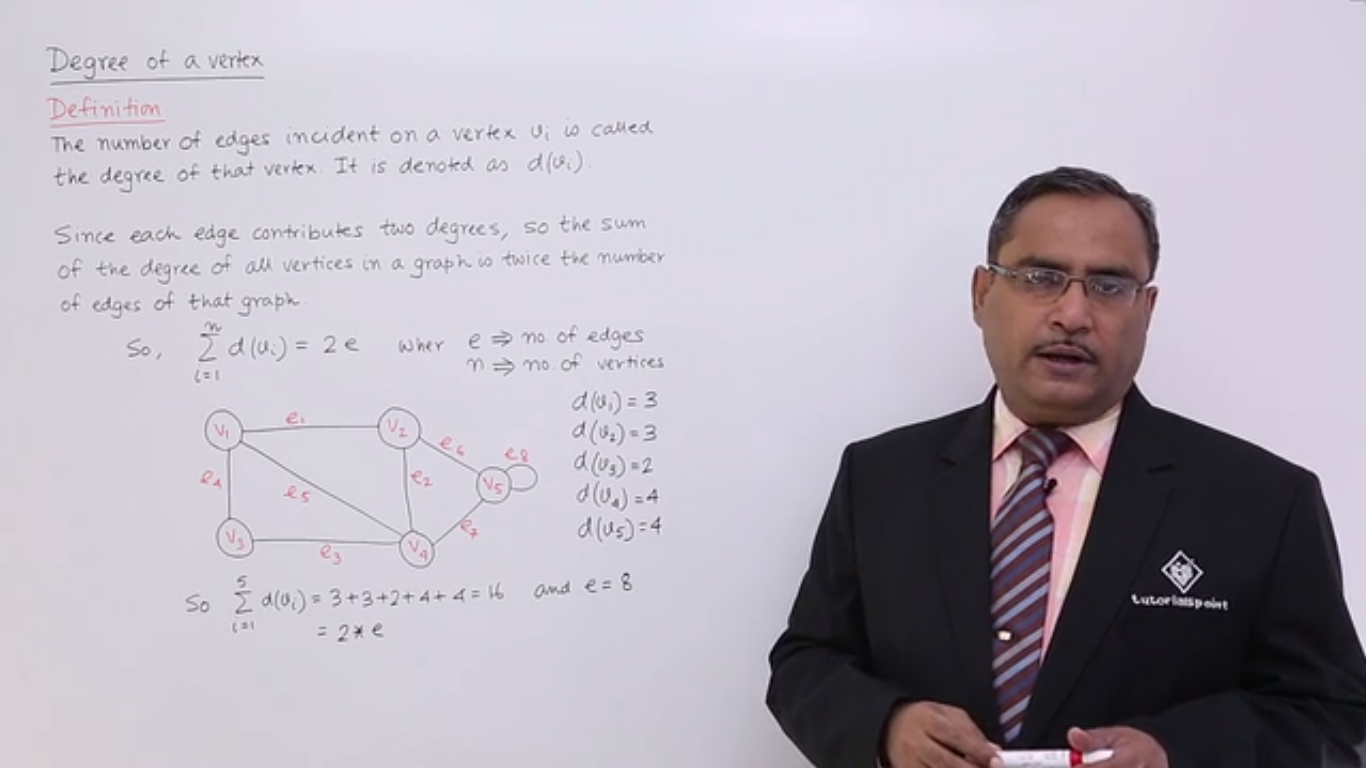 Degree of a vertex
Definition
The number of edges incident on a vertex vi is called
the degree of that vertex. It is denoted as d(vi).
Since each edge contributes two degrees, so the sum
of the degree of all vertices in a graph is twice the number
of edges of that graph.
So, n∑i=1 d(vi) = 2e wher e ⇒ no. of edges
n ⇒ no. of vertices
d(v1) = 3
d(v2) = 3
d(v3) = 2
d(v4) = 4
d(v5) = 4
V1 e1 V2
e6 e8
e4 e5 e2 V5
e7
V3 e3 V4
So 5∑i=1 d(vi) = 3+3+2+4+4 = 16 and e = 8
= 2 * e
tutorialspoint